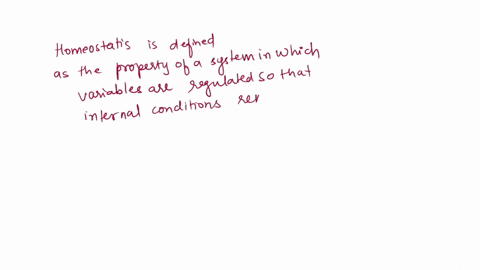 Homeostatis is defined
as the property of a system in which
variables are regulated so that
internal conditions rer